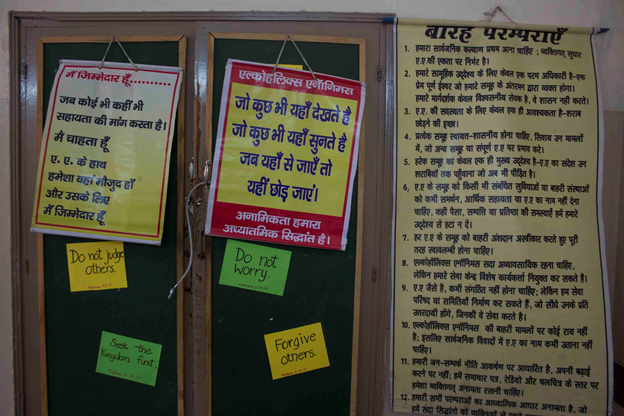 मैं जिम्मेदार हूँ..........
जब कोई भी कहीं भी
सहायता की मांग करता है।
मैं चाहता हूँ
ए. ए. के हाथ
हमेशा वहां मौजूद हों
और उसके लिए
मैं जिम्मेदार हूँ
Do not judge
others.
Seek the
kingdom first.
एल्कोहॉलिक्स एनॉनिमस
जो कुछ भी यहाँ देखते है
जो कुछ भी यहाँ सुनते है
जब यहाँ से जाएँ तो
यहीं छोड़ जाएं।
अनामिकता हमारा
अध्यात्मिक सिद्धांत है।
Do not
Worry.
Forgive
others.
बारह परम्पराएँ
1 हमारा सार्वजनिक कल्याण प्रथम आना चाहिए ; व्यक्तिगत सुधार
ए.ए.की एकता पर निर्भर है।
2 हमारे सामूहिक उद्देश्य के लिए केवल एक परम अधिकारी है–एक
प्रेम पूर्ण ईश्वर जो हमारे समूह के अंतरात्म द्वारा व्यक्त होगा।
हमारे मार्गदर्शक केवल विश्वसनीय सेवक है, वे शासन नहीं करते।
3 ए.ए. की सदस्यता के लिए केवल एक ही आवश्यकता है–शराब
छोड़ने की इच्छा।
4 प्रत्येक समूह स्वायत्त–शासनीय होना चाहिए, सिवाय उन मामलों
में, जो अन्य समूह या संपूर्ण ए.ए पर प्रभाव करे।
5 हरेक समूह का केवल एक ही मुख्य उद्देश्य है–एए का संदेश उन
शराबियों तक पहुँचाना जो अब भी पीड़ित है।
6 ए.ए के समूह को किसी भी संबंधित सुविधाओं या बाहरी संस्थाओं
को कभी समर्थन, आर्थिक सहायता या ए.ए का नाम नहीं देना
चाहिए, कही पैसा, सम्पत्ति या प्रतिष्ठा की समस्याएँ हमें हमारे
उद्देश्य से हटा न दें।
7 हर ए.ए के समूह को बाहरी अंशदान अस्वीकार करते हुए पूरी
तरह स्वावलम्बी होना चाहिए।
8 एल्कोहॉलिक्स एनॉनिमस सदा अव्यावसायिक रहना चाहिए,
लेकिन हमारे सेवा केन्द्र विशेष कार्यकर्ता नियुक्त कर सकते हैं।
9 ए.ए जैसे है, कभी संगठित नहीं होना चाहिए; लेकिन हम सेवा
परिषद या समितियाँ निर्माण कर सकते हैं, जो सीधे उनके प्रति
उतरदायी होंगे, जिनकी वे सेवा करते है।
10 एल्कोहॉलिक्स एनॉनिमस की बाहरी मामलों पर कोई राय नहीं
है; इसलिए सार्वजनिक विवादों में ए.ए का नाम कभी उठाना नहीं
चाहिए।
11 हमारी जन–सम्पर्क नीति आकर्षण पर आधारित है, अपनी बढ़ाई
करने पर नहीं; हमें समाचार पत्र, रेडियो और चलचित्र के स्तर पर
हमेशा व्यक्तिगत अनामता रखनी चाहिए।
12 हमारी सभी परम्पराओं का आध्यात्मिक आधार अनामता है, जो